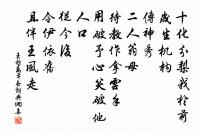 十化分梨我於前
歲生機构
傳神秀
二人翁母
待教作拿雲手
用破予心笑破他
人口
從今後
令伊依舊
且伴王風走